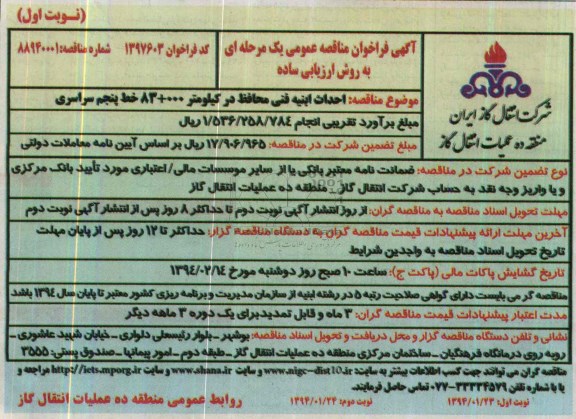 (نوبت اول)
شرکت انتقال گاز ایران
منطقه ده عملیات انتقال گاز
آگهی فراخوان مناقصه عمومی یک مرحله ای
به روش ارزیابی ساده
کد فراخوان ۱۳۹۷۶۰۳ شماره مناقصه: ۸۸۹۴۰۰۰۱
موضوع مناقصه: احداث ابنیه فنی محافظ در کیلومتر ۰۰۰+۸۳ خط پنجم سراسری
مبلغ برآورد تقریبی انجام ۱/۵۳۶/۲۵۸/۷۸۴ ریال
مبلغ تضمین شرکت در مناقصه: ۱۷/۹۰۶/۹۶۵ ریال بر اساس آیین نامه معاملات دولتی
نوع تضمین شرکت در مناقصه: ضمانت نامه معتبر بانکی یا از سایر موسسات مالی/ اعتباری مورد تأیید بانک مرکزی
و یا واریز وجه نقد به حساب شرکت انتقال گاز - منطقه ده عملیات انتقال گاز
مهلت تحویل اسناد مناقصه به مناقصه گران: از روز انتشار آگهی نوبت دوم تا حداکثر ۸ روز پس از انتشار آگهی نوبت دوم
آخرین مهلت ارائه پیشنهادات قیمت مناقصه گران به دستگاه مناقصه گزار: حداکثر تا ۱۲ روز پس از پایان مهلت
تاریخ تحویل اسناد مناقصه به واجدین شرایط
تاریخ گشایش پاکات مالی (پاکت ج): ساعت ۱۰ صبح روز دوشنبه مورخ ۱۳۹۴/۰۲/۱۴
مناقصه گر می بایست دارای گواهی صلاحیت رتبه ۵ در رشته ابنیه از سازمان مدیریت و برنامه ریزی کشور معتبر تا پایان سال ۱۳۹۴ باشد
مدت اعتبار پیشنهادات قیمت مناقصه گران: ۳ ماه و قابل تمدید برای یک دوره ۳ ماهه دیگر
نشانی و تلفن دستگاه مناقصه گزار و محل دریافت و تحویل اسناد مناقصه: بوشهر - بلوار رئیسعلی دلواری - خیابان شهید عاشوری -
روبه روی درمانگاه فرهنگیان - ساختمان مرکزی منطقه ده عملیات انتقال گاز - طبقه دوم - امور پیمانها - صندوق پستی: ۳۵۵۵
مناقصه گران می توانند جهت کسب اطلاعات بیشتر به سایت: www.nigc-dist10.ir و سایت www.shana.ir و سایت http://iets.mporg.ir مراجعه و
یا با شماره تلفن ۳۳۳۳۴۵۷۹-۰۷۷ تماس حاصل فرمایند.
نوبت اول: ۱۳۹۴/۰۱/۲۳ نوبت دوم: ۱۳۹۴/۰۱/۲۴
روابط عمومی منطقه ده عملیات انتقال گاز